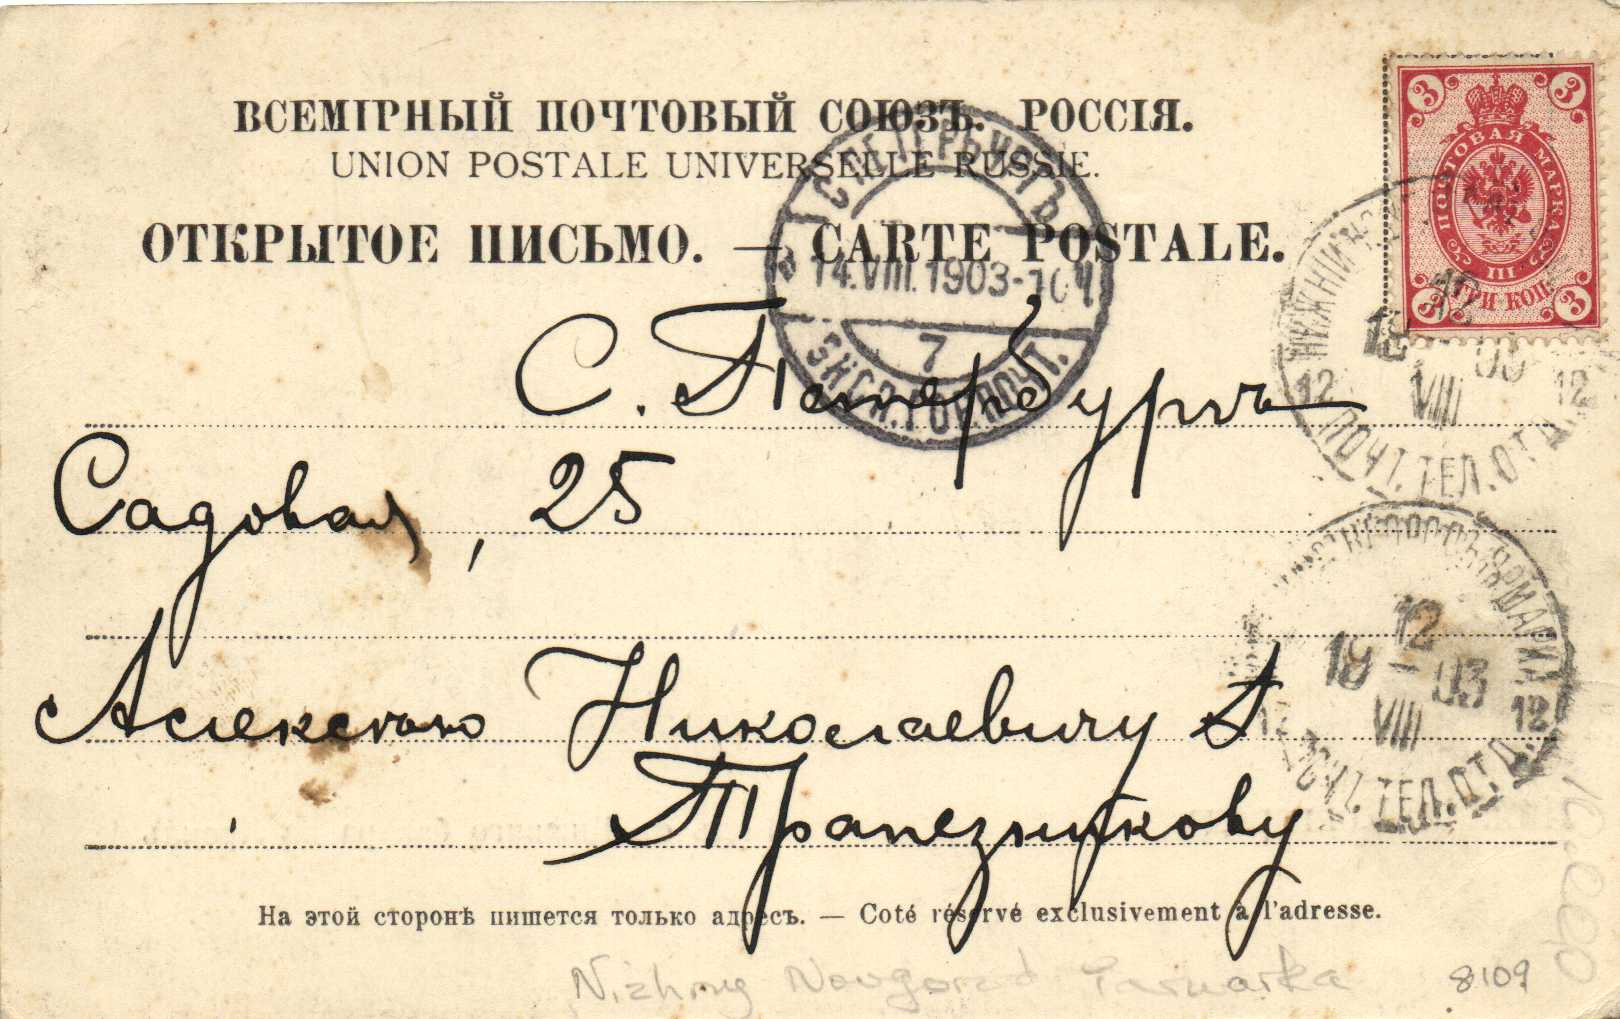 ВСЕМІРНЫЙ ПОЧТОВЫЙ СОЮЗЪ. РОССІЯ.
UNION POSTALE UNIVERSELLE RUSSIE.
ОТКРЫТОЕ ПИСЬМО. — CARTE POSTALE.
3 3
ПОЧТОВАЯ МАРКА
III
ТРИ КОП.
3 3
С.ПЕТЕРБУРГЪ
14.VIII.1903-10Ч
7
ЭКСП.ГОР.ПОЧТ.
12 VIII 1903
12 12
ПОЧТ.ТЕЛ.ОТД.
С. Петербургъ
Садовая, 25
Алексѣю Николаевичу
Трапезникову
НИЖНІЙ НОВГОРОДЪ ЯРМАРКА
12 VIII 1903
12 12
ПОЧТ.ТЕЛ.ОТД.
На этой сторонѣ пишется только адресъ. — Coté réservé exclusivement à l'adresse.
Nizhny Novgorod Yarmarka
8109